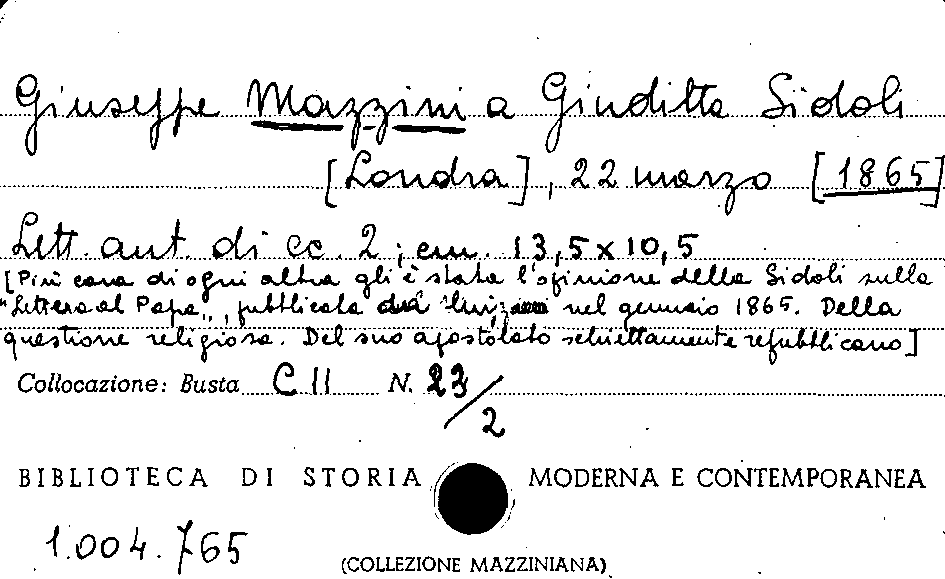 Giuseppe Mazzini a Giuditta Sidoli
[Londra], 22 marzo [1865]
Lett. aut. di cc. 2; cm. 13,5x10,5
[Più cara di ogni altra gli è stata l'opinione della Sidoli sulla
"Lettera al Papa", pubblicata nel gennaio 1865. Della
questione religiosa. Del suo apostolato schiettamente repubblicano]
Collocazione: Busta C II N. 23/2
BIBLIOTECA DI STORIA MODERNA E CONTEMPORANEA
1.004.765
(COLLEZIONE MAZZINIANA)